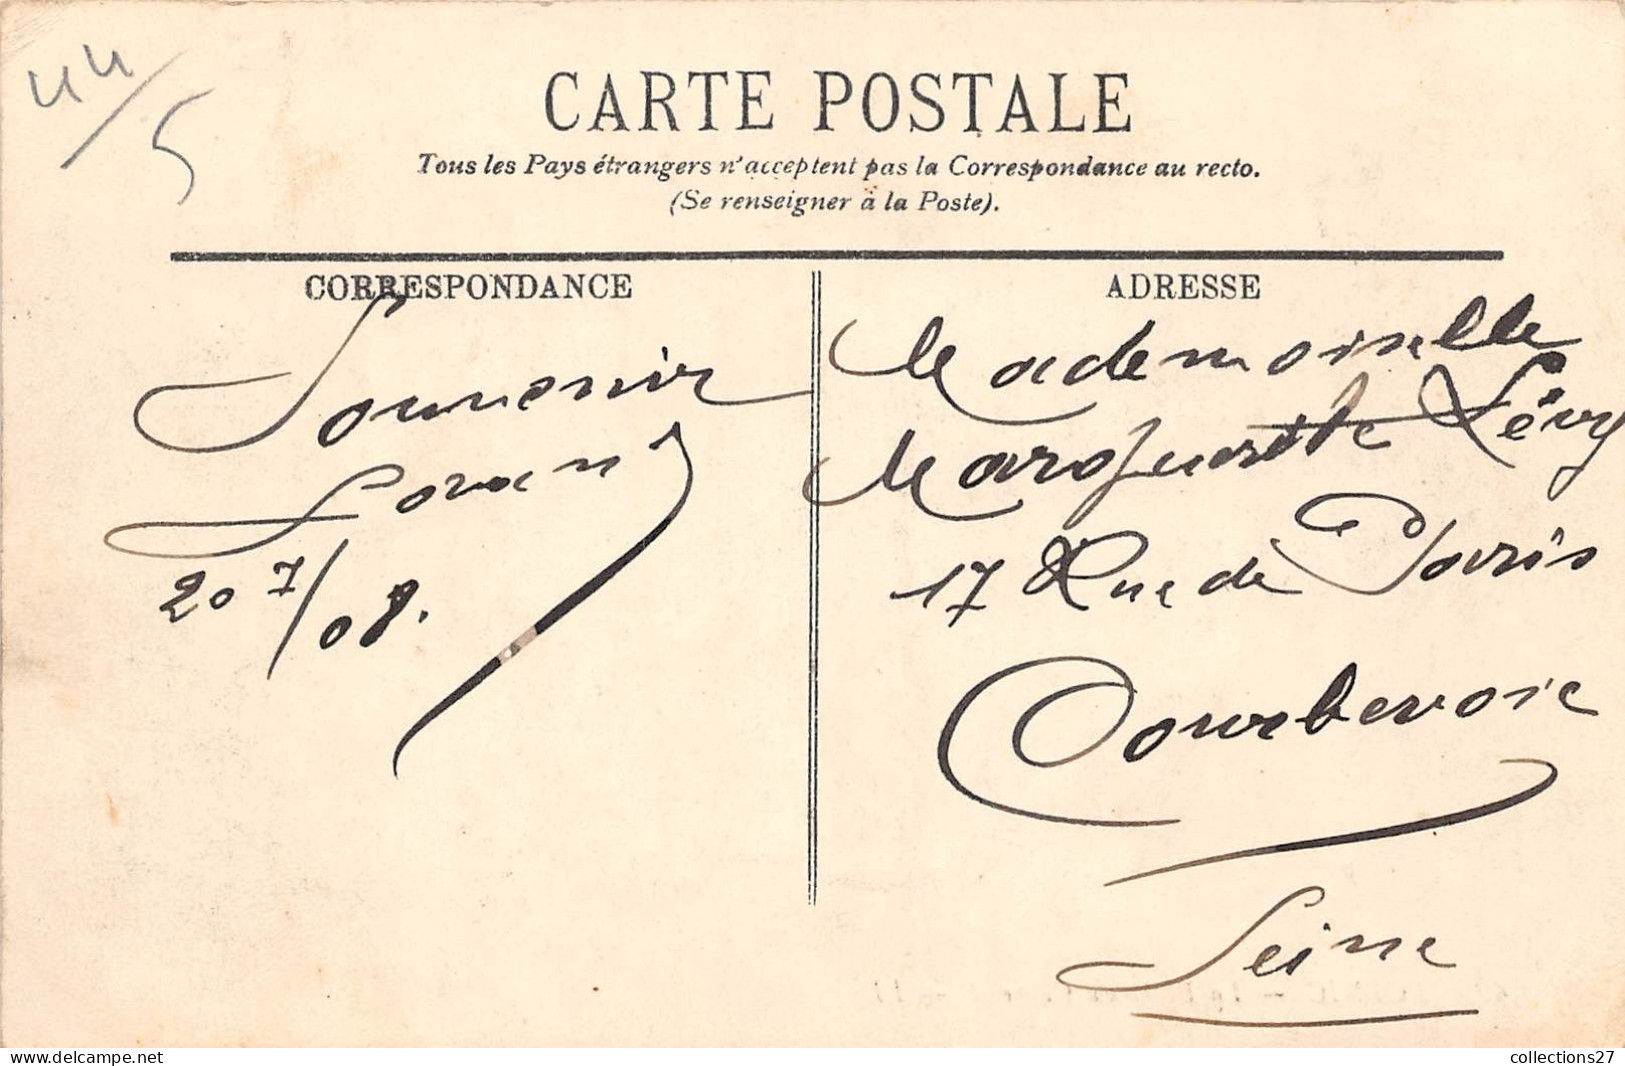 44/5
CARTE POSTALE
Tous les Pays étrangers n'acceptent pas la Correspondance au recto.
(Se renseigner à la Poste).
CORRESPONDANCE
Souvenir
20 7/08.
ADRESSE
Mademoiselle
Marguerite Lévy
17 Rue de Paris
Courbevoie
Seine
collections27